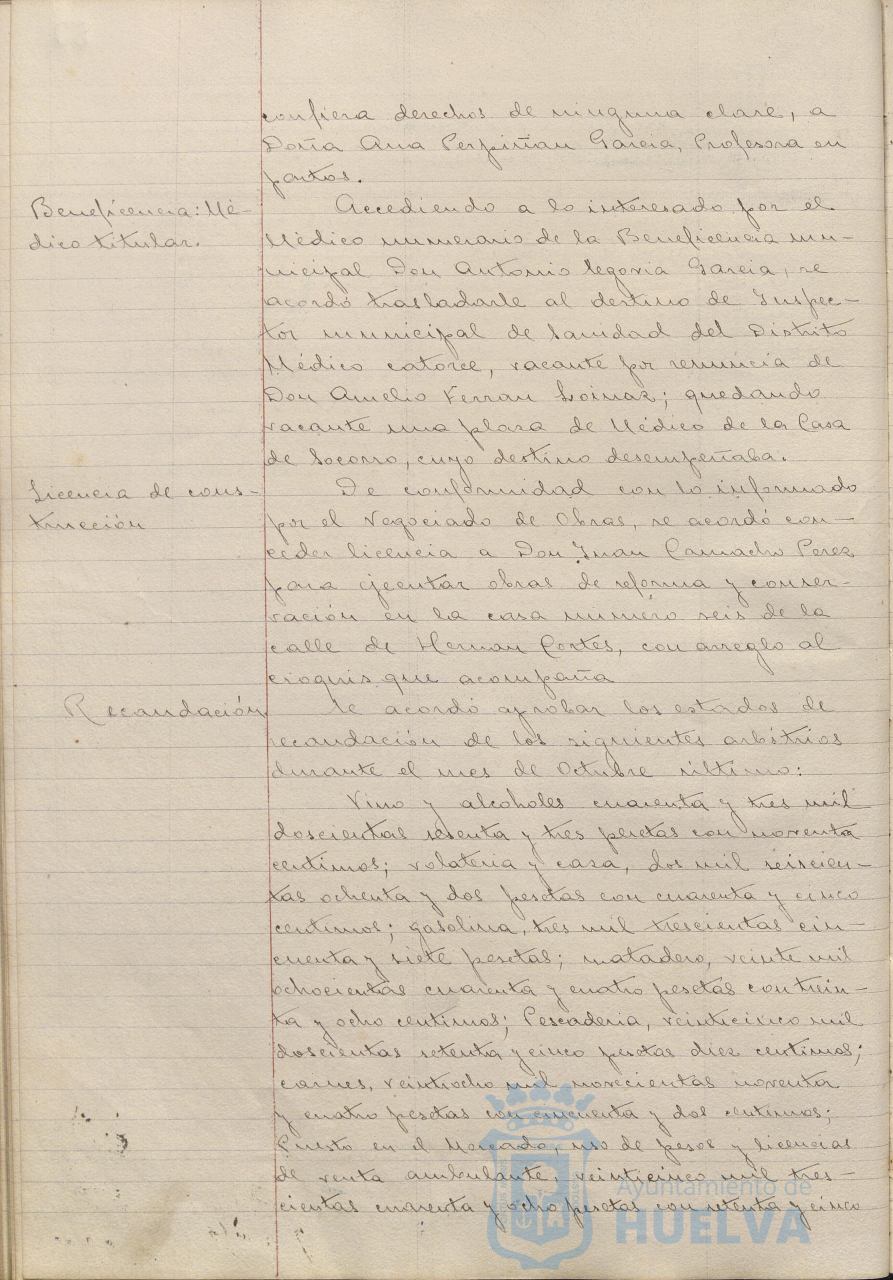 confiera derechos de ninguna clase, a
Doña Ana Perpiñan Garcia, Profesora en
partos.
Beneficencia: Mé-
dico titular.
Accediendo a lo interesado por el
Médico numerario de la Beneficencia mu-
nicipal Don Antonio Segovia Garcia, se
acordó trasladarle al destino de Inspec-
tor municipal de Sanidad del Distrito
Médico catorce, vacante por renuncia de
Don Amelio Ferran Loinaz; quedando
vacante una plaza de Médico de la Casa
de Socorro, cuyo destino desempeñaba.
Licencia de cons-
trucción
De conformidad con lo informado
por el Negociado de Obras, se acordó con-
ceder licencia a Don Juan Camacho Perez
para ejecutar obras de reforma y conser-
vación en la casa numero seis de la
calle de Hernan Cortes, con arreglo al
croquis que acompaña
Recaudación
Se acordó aprobar los estados de
recaudación de los siguientes arbitrios
durante el mes de Octubre último:
Vino y alcoholes cuarenta y tres mil
doscientas sesenta y tres pesetas con noventa
centimos; volateria y caza, dos mil seiscien-
tas ochenta y dos pesetas con cuarenta y cinco
centimos; gasolina, tres mil trescientas cin-
cuenta y siete pesetas; matadero, veinte mil
ochocientas cuarenta y cuatro pesetas con trein-
ta y ocho centimos; Pescaderia, veinticinco mil
doscientas setenta y cinco pesetas diez centimos;
carnes, veintiocho mil novecientas noventa
y cuatro pesetas con cincuenta y dos centimos;
Puesto en el Mercado, uso de pesos y licencias
de venta ambulante, veinticinco mil tres-
cientas cuarenta y ocho pesetas con setenta y cinco
Ayuntamiento de
HUELVA